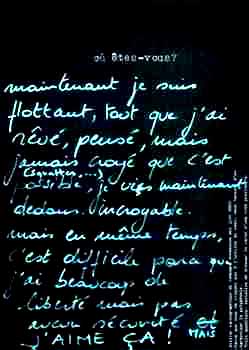 où êtes-vous?
maintenant je suis
flottant, tout que j'ai
rêvé, pensé, mais
jamais croyé que c'est
(squatter,...)
possible, je vis maintenant
dedans. incroyable.
mais en même temps,
c'est difficile parce que
j'ai beaucoup de
liberté mais pas
aucun sécurité et
MAIS
J'AIME ÇA !